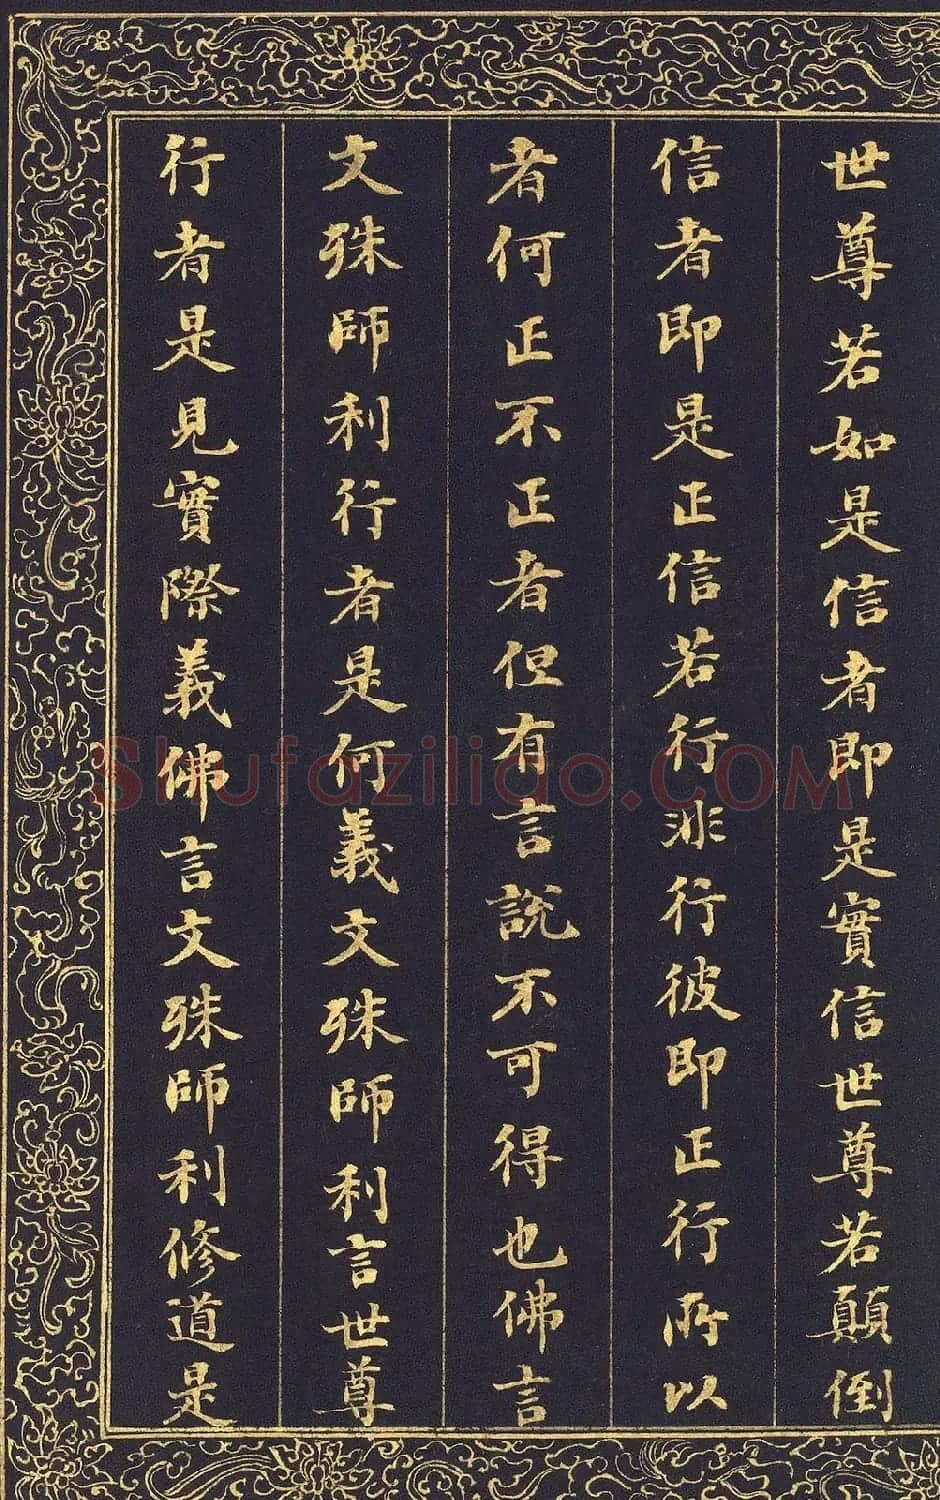 世尊若如是信者即是實信世尊若顛倒
信者即是正信若行非行彼即正行所以
者何正不正者但有言說不可得也佛言
文殊師利行者是何義文殊師利言世尊
行者是見實際義佛言文殊師利修道是
Shufaziliao.COM